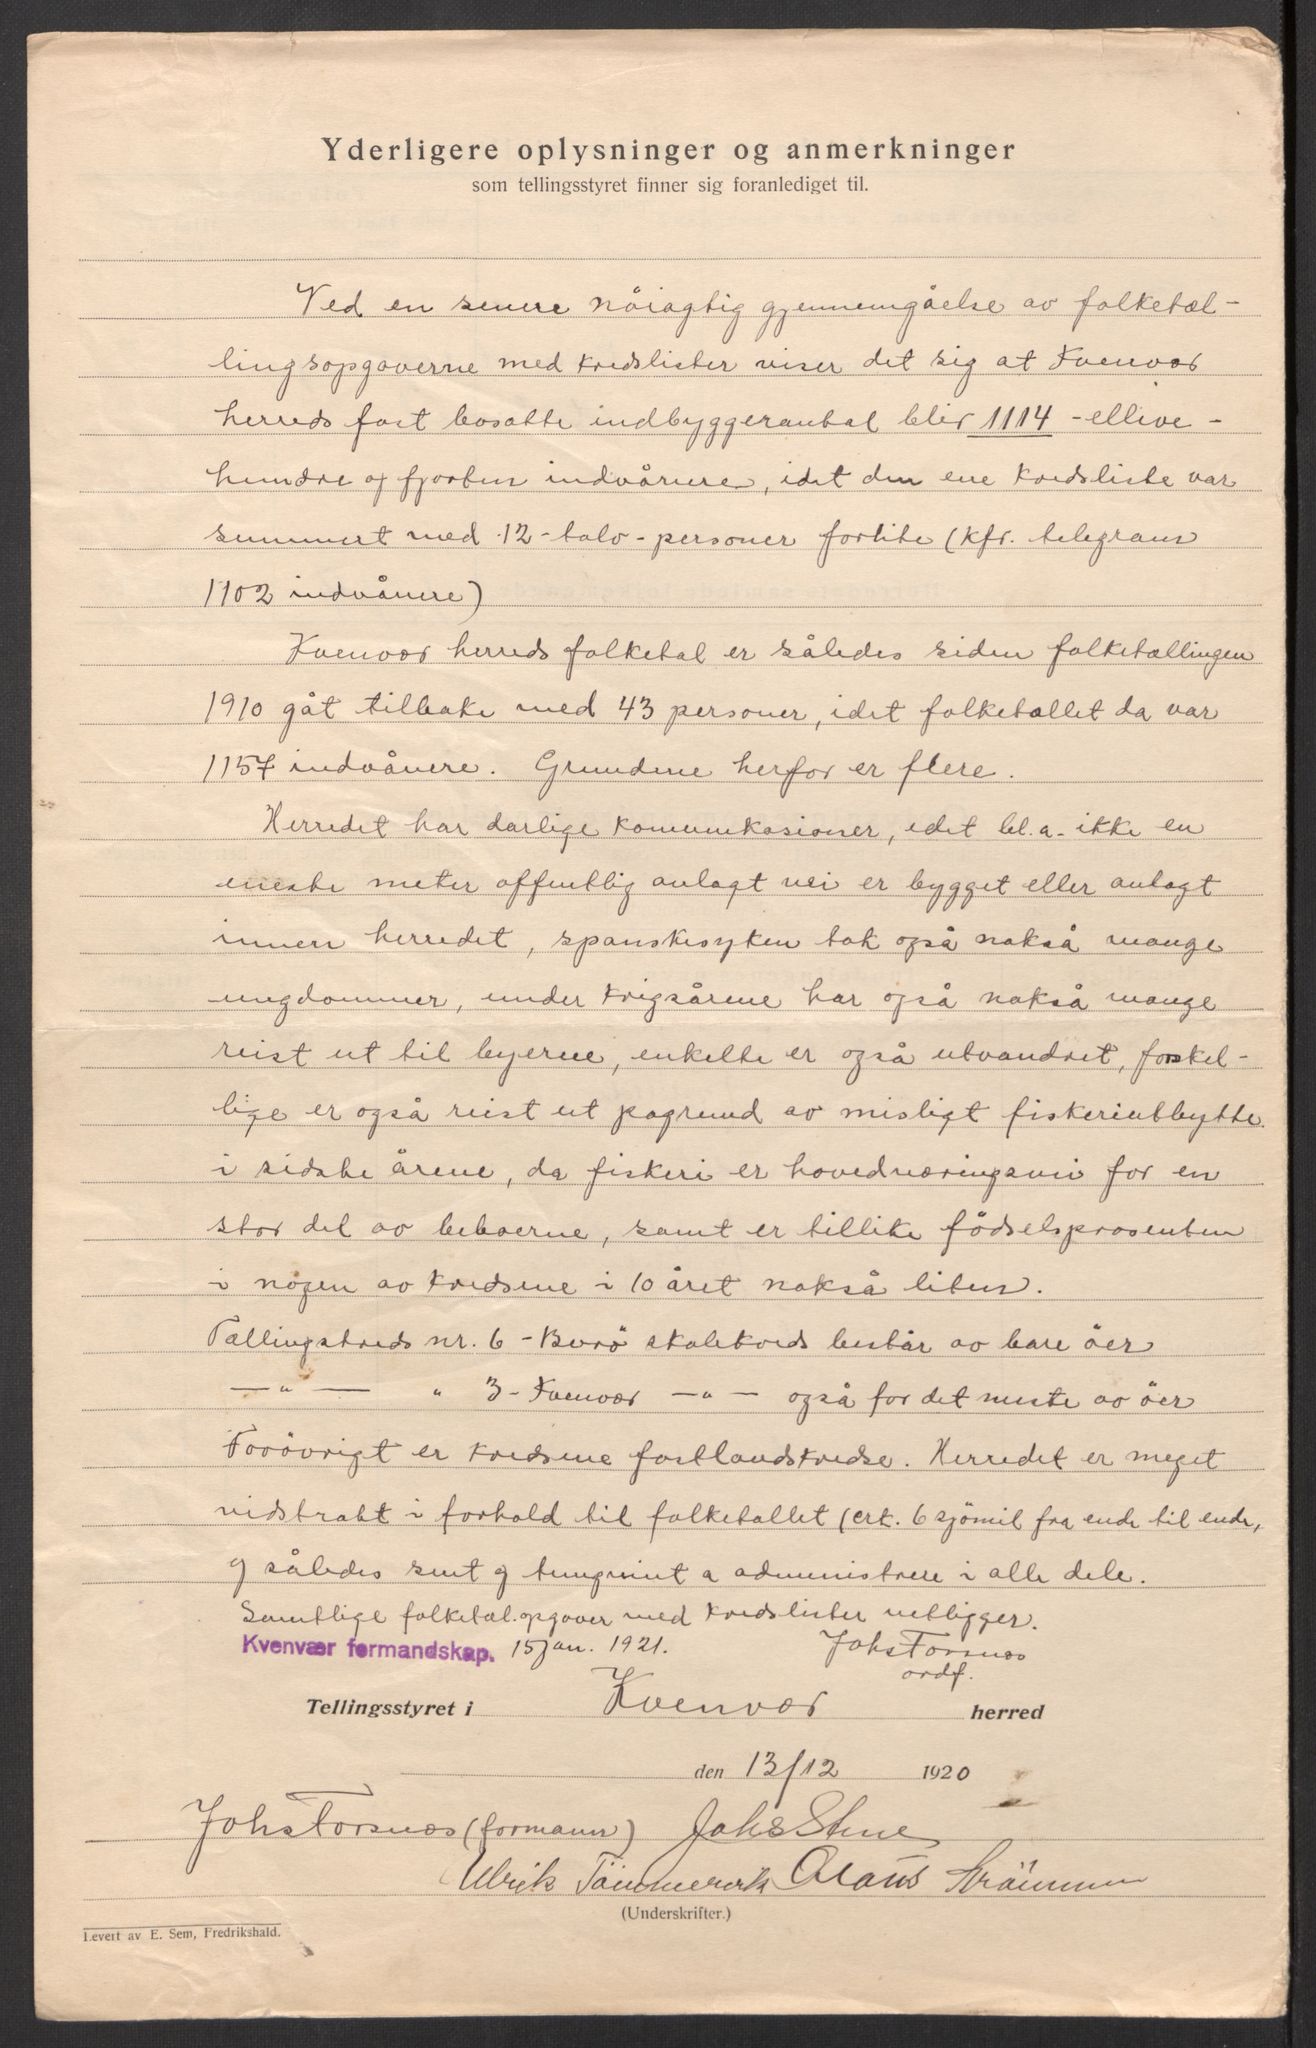 Yderligere oplysninger og anmerkninger
som tellingsstyret finner sig foranlediget til.
Ved en senere nöiagtig gjennemgåelse av folketæl-
lingsopgaverne med kredslister viser det sig at Kvenvær
herreds fast bosatte indbyggerantal blir 1114 - ellive-
hundre og fjorten indvånere, idet den ene kredsliste var
summert med 12-tolv-personer forlite (kfr. telegram
1102 indvånere)
Kvenvær herreds folketal er således siden folketællingen
1910 gåt tilbake med 43 personer, idet folketallet da var
1157 indvånere. Grundene herfor er flere.
Herredet har darlige komunikasioner, idet bl.a. ikke en
eneste meter offentlig anlagt vei er bygget eller anlagt
innen herredet, spanskesyken tok også nokså mange
ungdommer, under krigsårene har også nokså mange
reist ut til byerne, enkelte er også utvandret, forskel-
lige er også reist ut pagrund av misligt fiskeriutbytte
i sidste årene, da fiskeri er hovednæringsvei for en
stor del av beboerne, samt er tillike födselsprosenten
i nogen av kredsene i 10 året nokså liten.
Tællingskreds nr. 6 - Burö skolekreds består av bare öer
— " — " 3 - Kvenvær — " — også for det meste av öer
Forövrigt er kredsene fastlandskredse. Herredet er meget
vidstrakt i forhold til folketallet (crk. 6 sjömil fra ende til ende,
og således sent og tungvint a administrere i alle dele.
Samtlige folketæl.opgaver med kredslister vedligger.
Kvenvær formandskap. 15 jan. 1921. Johs Forsnes
ordf.
Tellingsstyret i Kvenvær herred
den 13/12 1920
Johs Forsnes (formann) Johs Stene
Ulrik Tömmervik Olaus Strömmen
(Underskrifter.)
Levert av E. Sem, Fredrikshald.